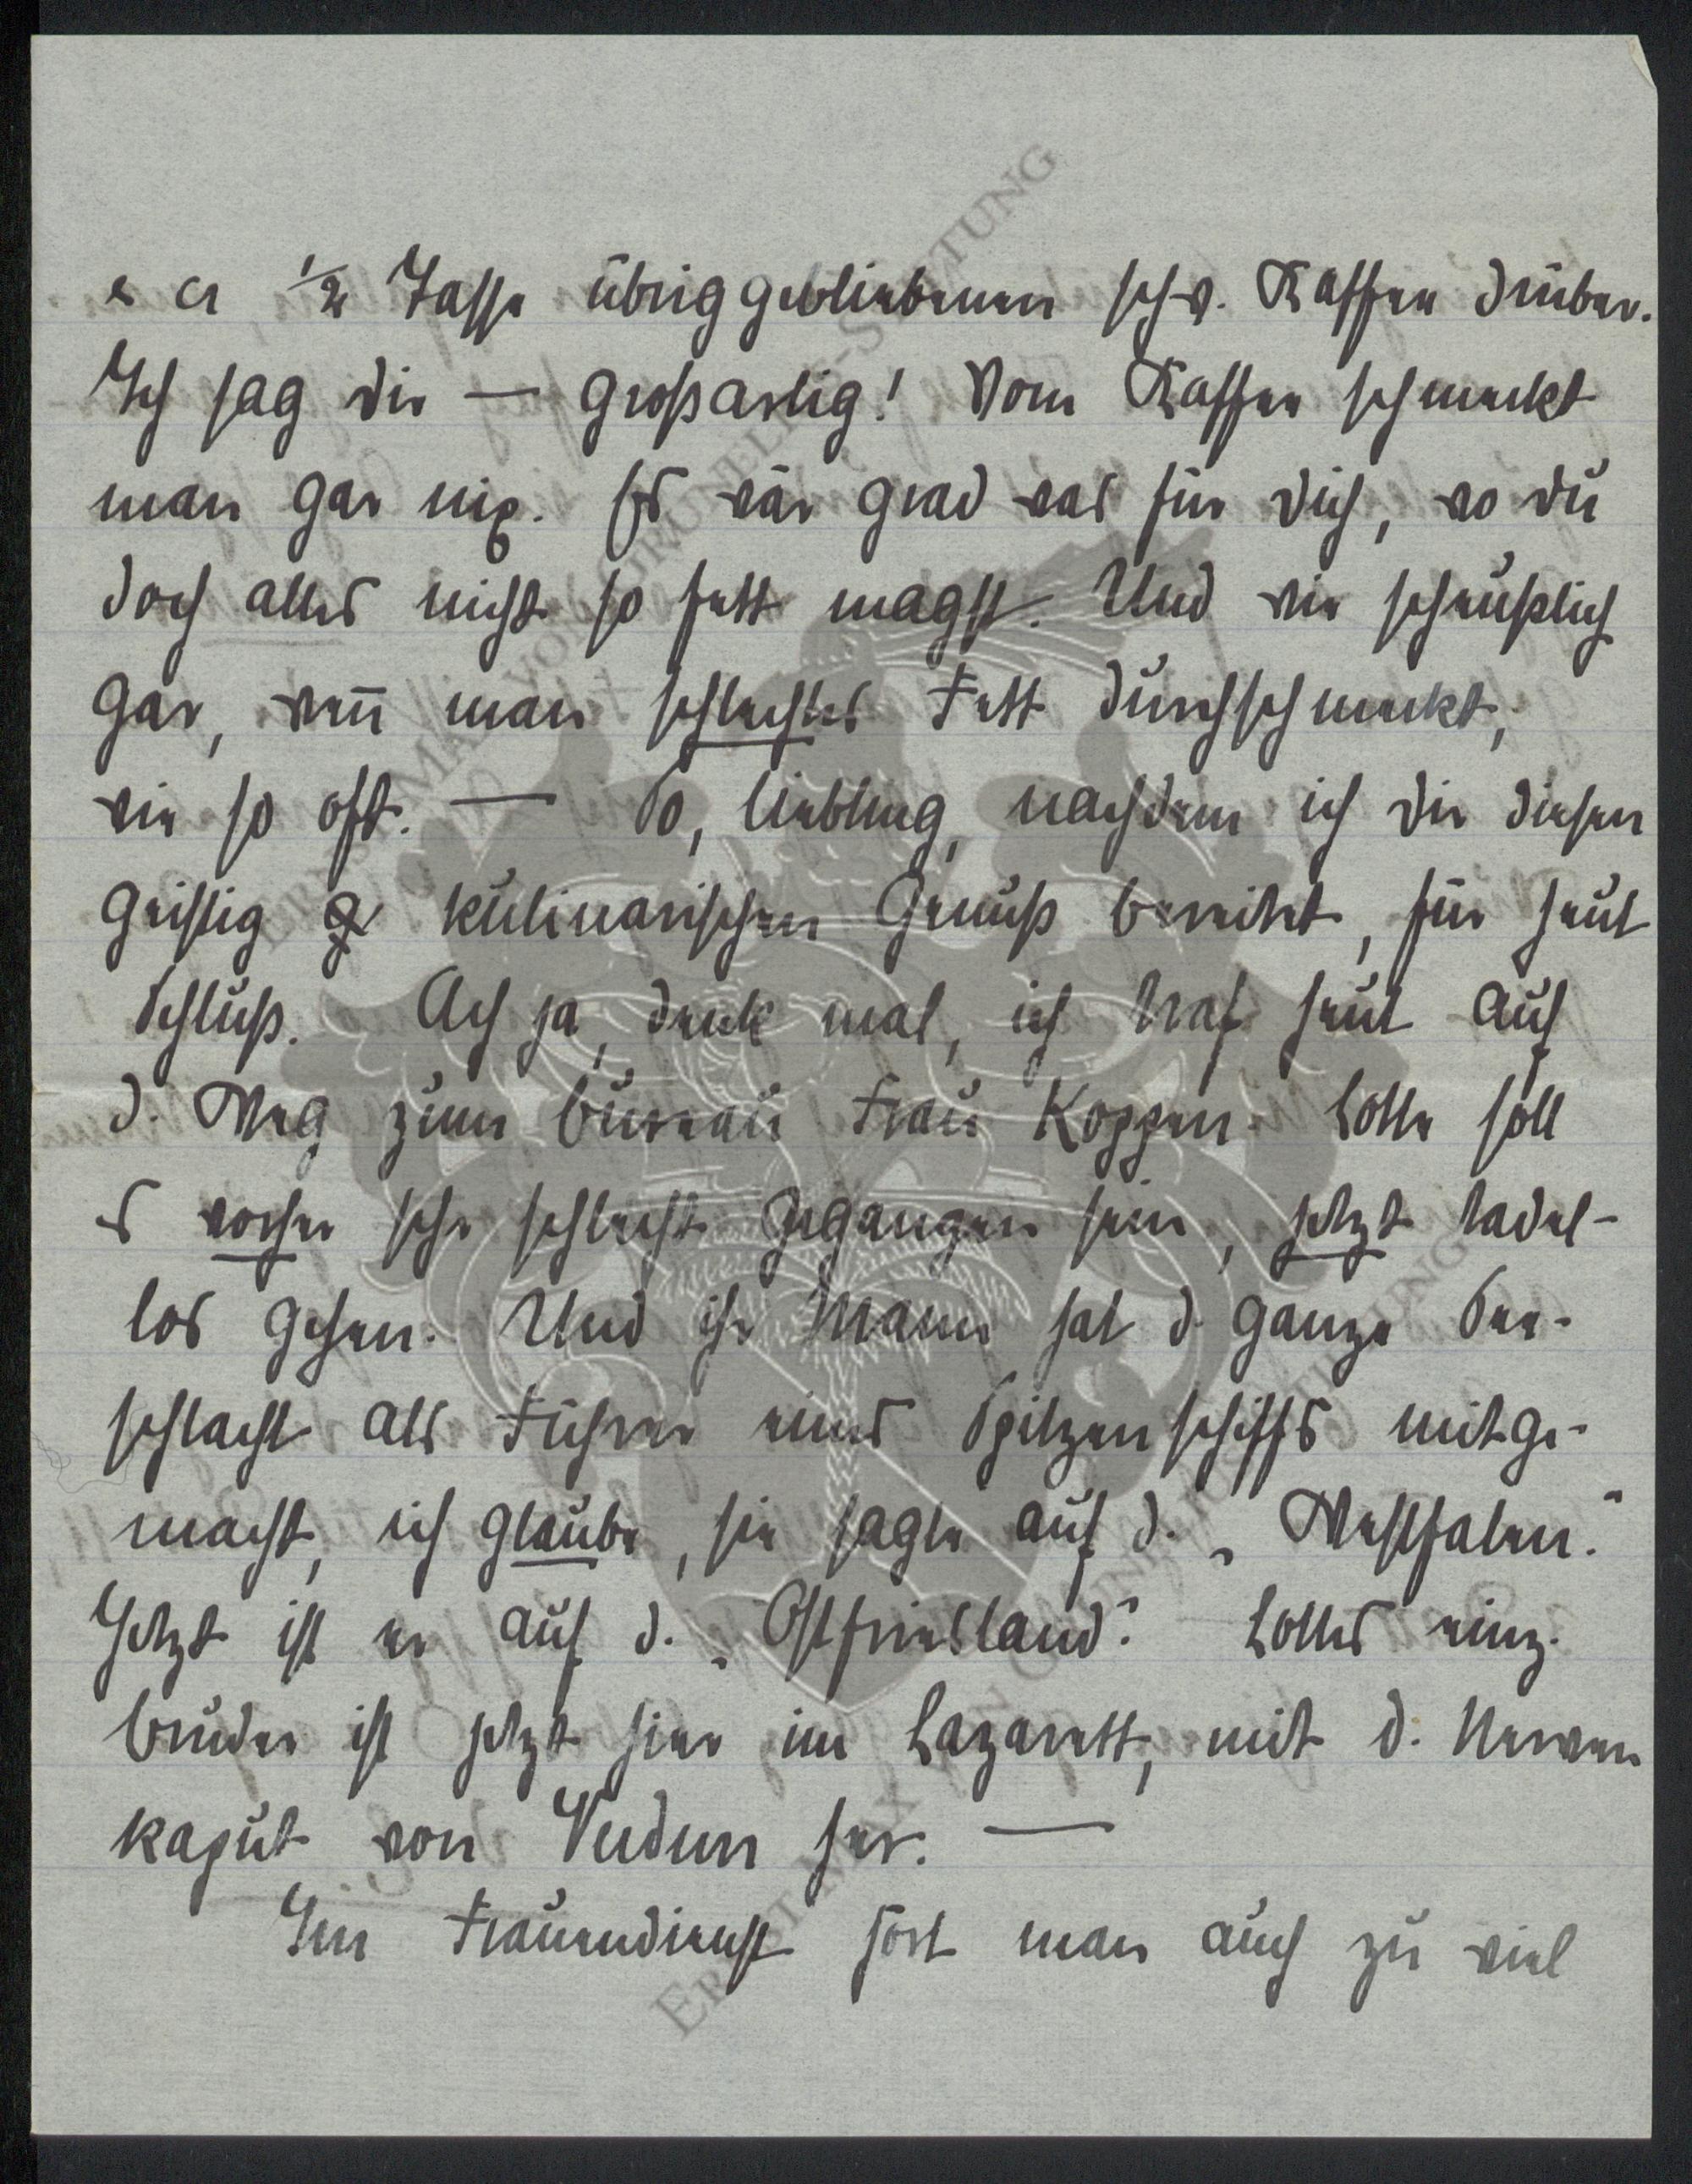 & ca 1/2 Tasse übriggebliebenen schw. Kaffee drüber.
Ich sag dir — großartig! Vom Kaffee schmeckt
man gar nix. Es wär grad was für dich, wo du
doch alles nicht so fett magst. Und wie scheußlich
gar, weñ man schlechtes Fett durchschmeckt,
wie so oft. — So, Liebling, nachdem ich dir diesen
geistig & kulinarischen Genuß bereitet, für heut
Schluß. Ach ja, denk mal, ich traf heut auf
d. Weg zum Bureau Frau Koppen. Lotte soll
es vorher sehr schlecht gegangen sein, jetzt tadel-
los gehen. Und ihr Mann hat d. ganze See-
schlacht als Führer eines Spitzenschiffs mitge-
macht, ich glaube, sie sagte auf d. „Westfalen."
Jetzt ist er auf d. „Ostfriesland". Lottes einz.
Bruder ist jetzt hier im Lazarett, mit d. Nerven
kaput von Verdun her. —
Im Frauendienst hört man auch zu viel
ERNST-MAX VON GRUNELIUS-STIFTUNG
ERNST-MAX VON GRUNELIUS-STIFTUNG